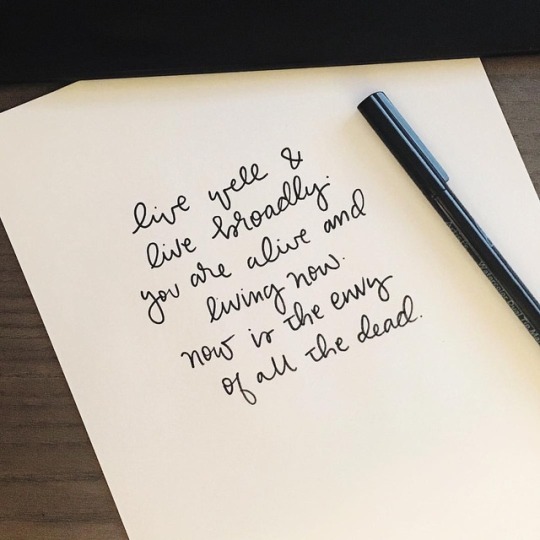 live well &
live broadly.
you are alive and
living now.
now is the envy
of all the dead.